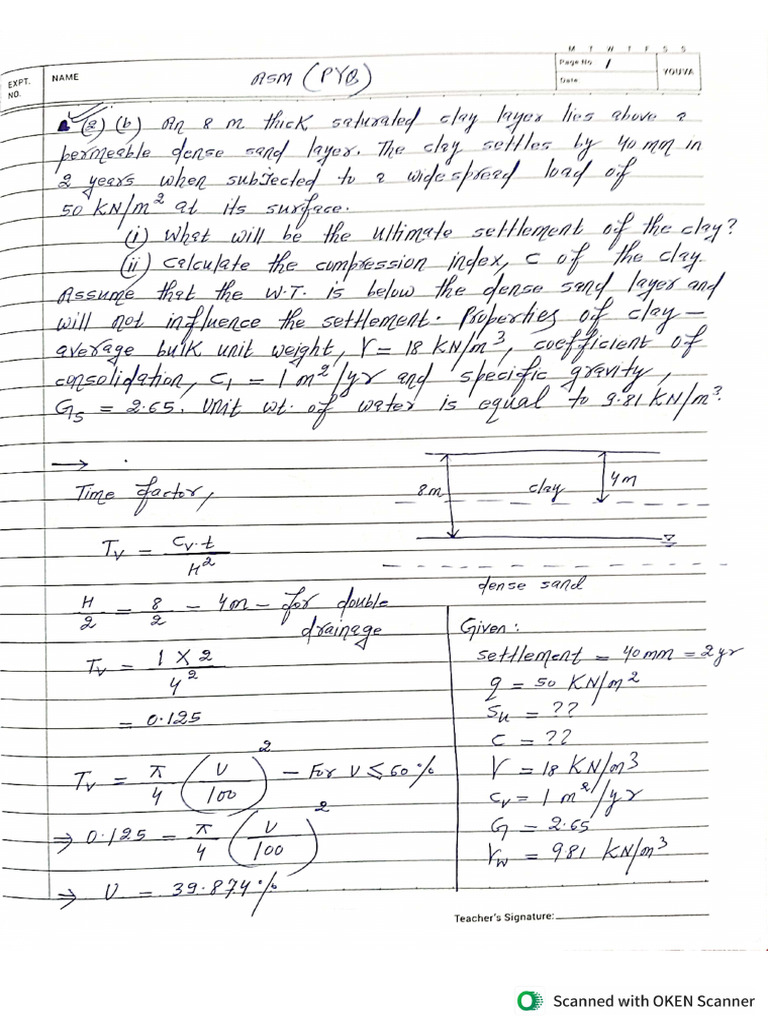 M T W T F S S
EXPT. NO.
NAME
ASM (PYQ)
Page No 1
Date
YOUVA
(2) (b) An 8 m thick saturated clay layer lies above a
permeable dense sand layer. The clay settles by 40 mm in
2 years when subjected to a widespread load of
50 KN/m² at its surface.
(i) What will be the ultimate settlement of the clay?
(ii) Calculate the compression index, C of the clay.
Assume that the W.T. is below the dense sand layer and
will not influence the settlement. Properties of clay –
average bulk unit weight, γ = 18 KN/m³, coefficient of
consolidation, C₁ = 1 m²/yr and specific gravity,
Gs = 2.65. Unit wt. of water is equal to 9.81 KN/m³.
→ .
Time factor,
Tv = Cv.t / H²
H/2 = 8/2 – 4m – for double
drainage
Tv = 1 X 2 / 4²
= 0.125
Tv = π/4 (U/100)² – For U ≤ 60%
⇒ 0.125 = π/4 (U/100)²
⇒ U = 39.874%
8m
clay
4m
dense sand
Given :
settlement = 40mm = 2yr
q = 50 KN/m²
Su = ??
C = ??
γ = 18 KN/m3
Cv = 1 m²/yr
G = 2.65
γw = 981 KN/m³
Teacher's Signature:
Scanned with OKEN Scanner